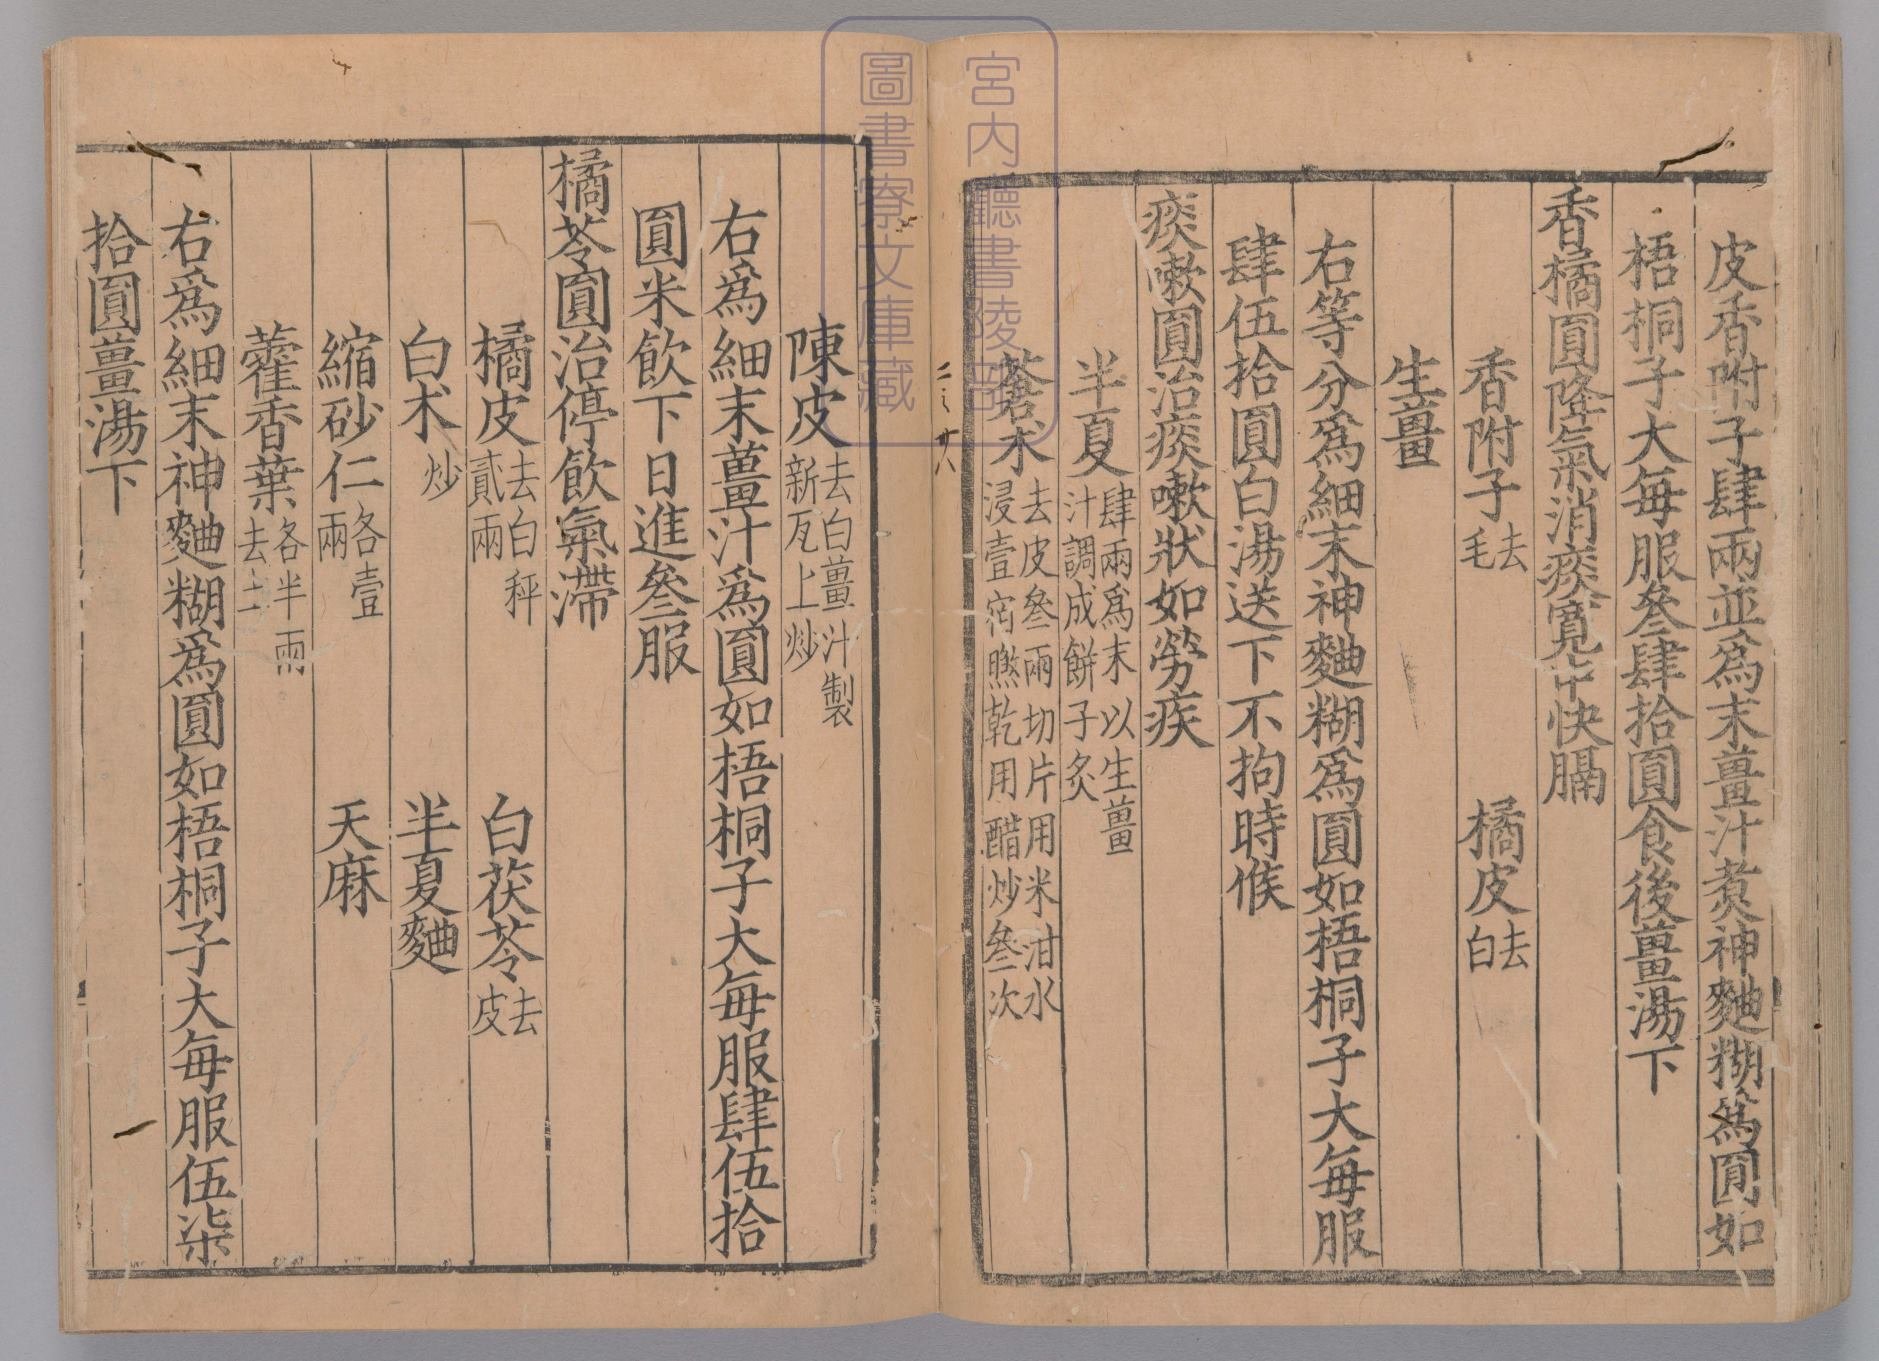 皮香附子肆兩並爲末薑汁煮神麴糊爲圓如
梧桐子大每服叄肆拾圓食後薑湯下
香橘圓降氣消痰寬中快膈
香附子去毛　橘皮去白
生薑
右等分爲細末神麴糊爲圓如梧桐子大每服
肆伍拾圓白湯送下不拘時候
痰嗽圓治痰嗽狀如勞疾
半夏肆兩爲末以生薑汁調成餅子炙
蒼朮去皮叄兩切片用米泔水浸壹宿㬠乾用醋炒叄次
陳皮去白薑汁製新瓦上炒
右爲細末薑汁爲圓如梧桐子大每服肆伍拾
圓米飲下日進叄服
橘苓圓治停飲氣滯
橘皮去白秤貳兩　白茯苓去皮
白朮炒　半夏麴
縮砂仁各壹兩　天麻
藿香葉各半兩去土
右爲細末神麴糊爲圓如梧桐子大每服伍柒
拾圓薑湯下
宮内廳書陵部
圖書寮文庫藏